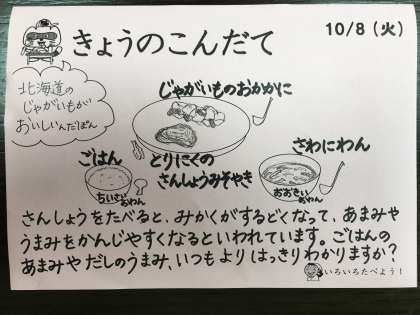 きょうのこんだて
10/8（火）
北海道の
じゃがいもが
おいしいんだぽん
じゃがいものおかかに
ごはん
ちいさい
おわん
とりにくの
さんしょうみそやき
さわにわん
おおきい
おわん
さんしょうをたべると、みかくがするどくなって、あまみや
うまみをかんじやすくなるといわれています。ごはんの
あまみや だしのうまみ、いつも より はっきり わかりますか？
いろいろたべよう！